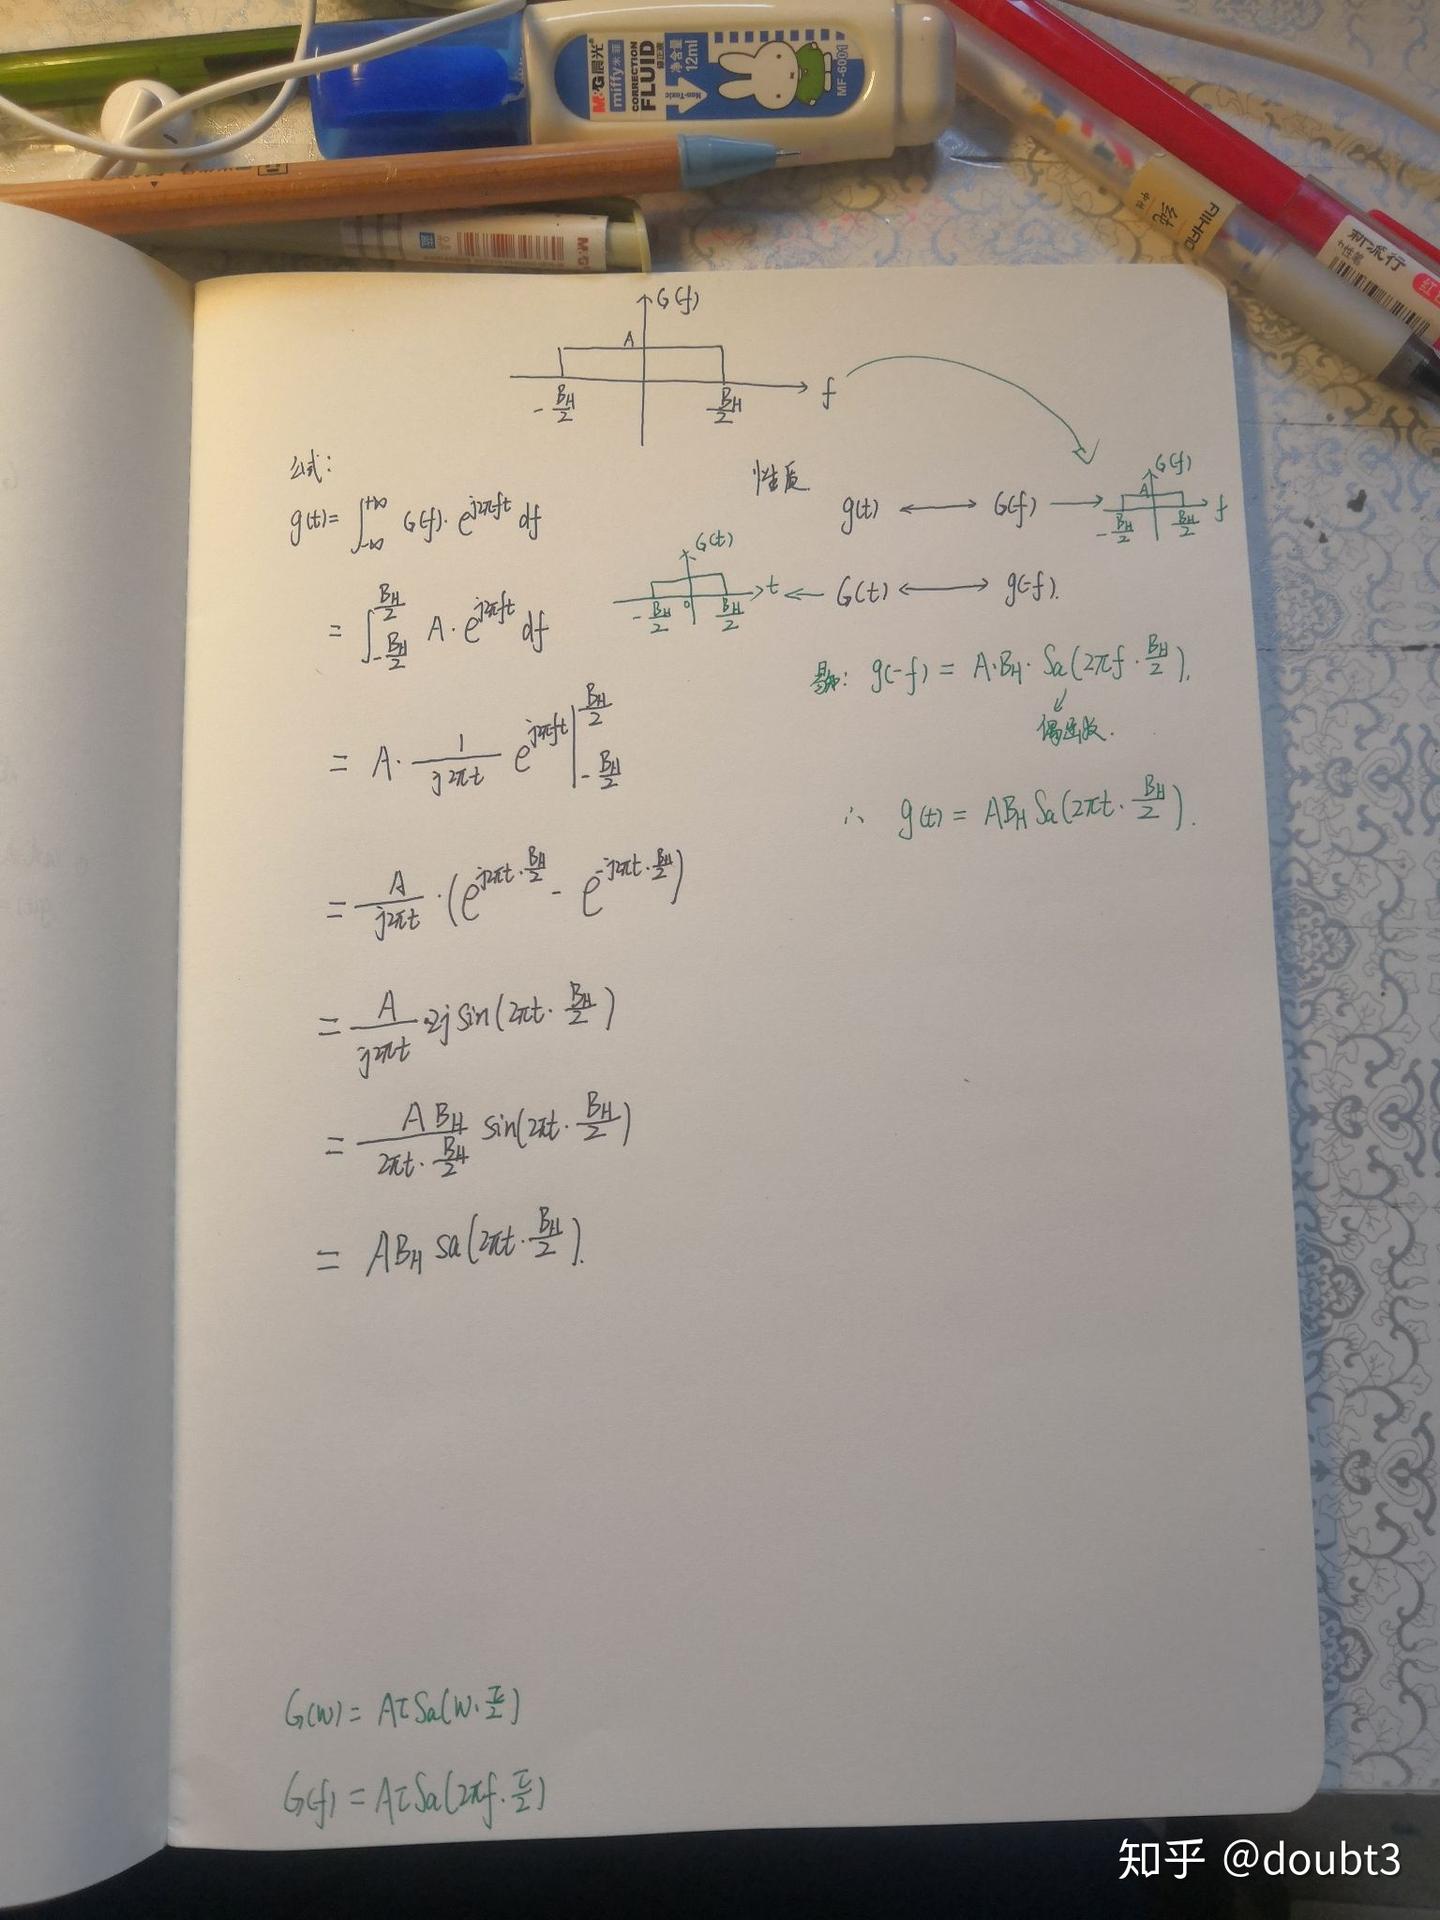 M&G晨光
miffy米菲
CORRECTION
FLUID
修正液
净含量
12ml
Non-Toxic
MF-6001
M&G
新流行
中性笔
G(f)
A
-B_H/2
B_H/2
f
公式:
g(t)= ∫_{-∞}^{+∞} G(f)· e^{j2πft} df
= ∫_{-B_H/2}^{B_H/2} A· e^{j2πft} df
= A· 1/(j2πt) e^{j2πft} |_{-B_H/2}^{B_H/2}
= A/(j2πt) ·(e^{j2πt·B_H/2} - e^{-j2πt·B_H/2})
= A/(j2πt) ·2j sin(2πt· B_H/2)
= AB_H/(2πt·B_H/2) sin(2πt· B_H/2)
= AB_H Sa(2πt· B_H/2).
性质
g(t) ⟷ G(f) ⟶
G(f)
A
-B_H/2
B_H/2
f
G(t)
-B_H/2
0
B_H/2
t
⟵ G(t) ⟷ g(-f).
易知: g(-f) = A·B_H· Sa(2πf · B_H/2).
偶函数.
∴ g(t) = AB_H Sa(2πt· B_H/2).
G(w) = Aτ Sa(w· τ/2)
G(f) = Aτ Sa(2πf· τ/2)
知乎 @doubt3